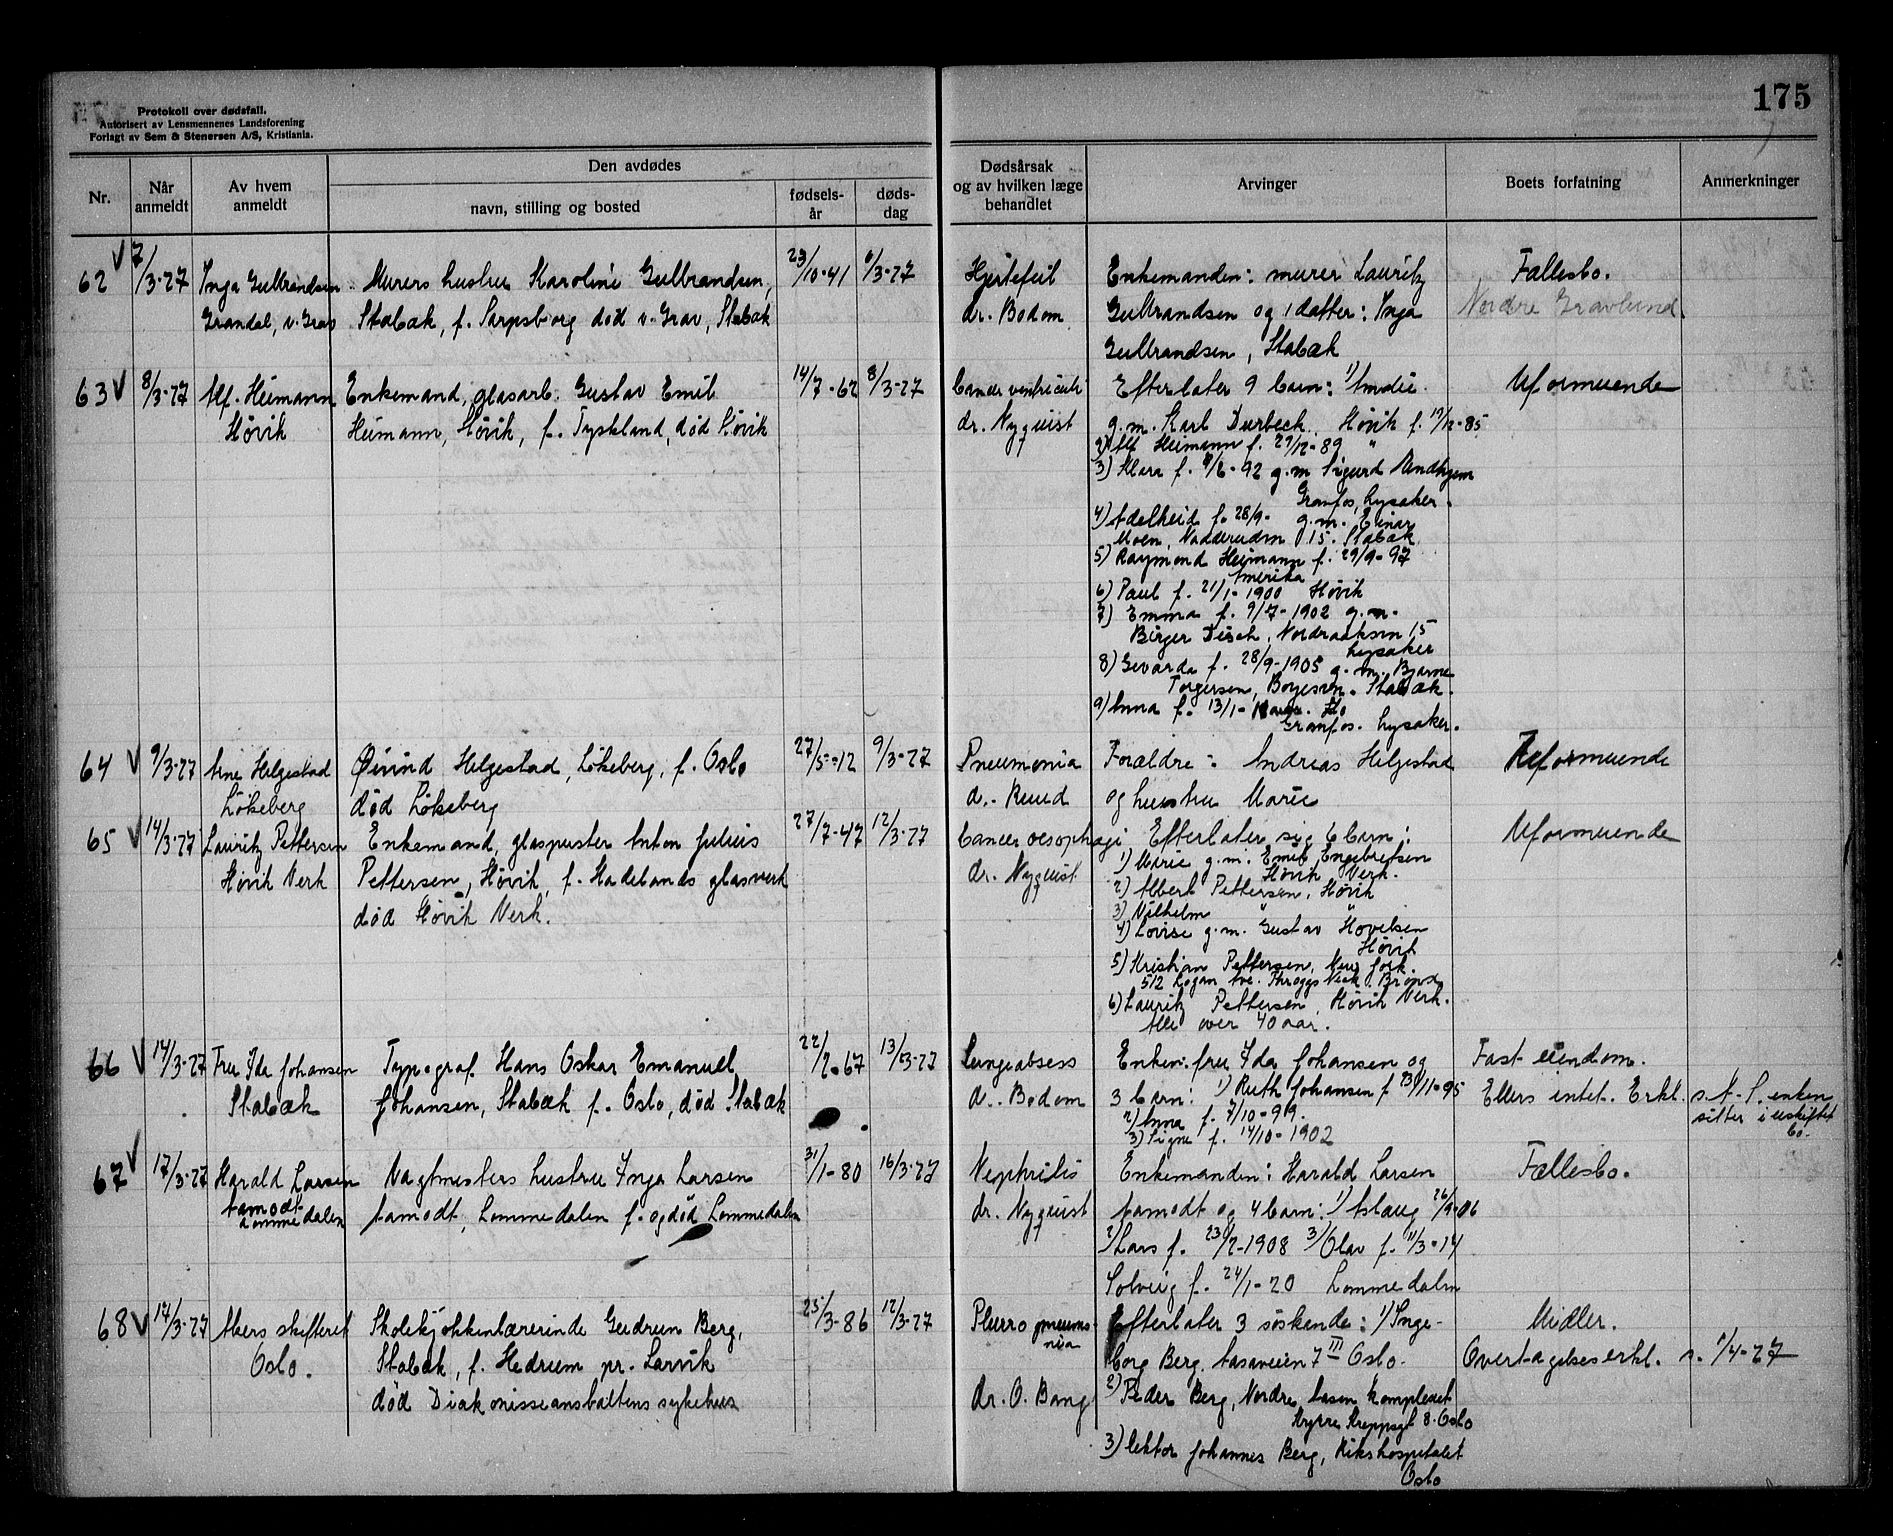 175
Protokoll over dødsfall.
Autorisert av Lensmennenes Landsforening
Forlagt av Sem & Stenersen A/S, Kristiania.
Nr.
Når anmeldt
Av hvem anmeldt
Den avdødes
navn, stilling og bosted
fødsels-år
døds-dag
Dødsårsak og av hvilken læge behandlet
Arvinger
Boets forfatning
Anmerkninger
62 7/3-27 Inga Gulbrandsen Murers hustru Karoline Gulbrandsen, 23/10-41 6/3-27 Hjertefeil Enkemanden: murer Lauritz Fællesbo.
Grandal, v. Grav Stabæk, f. Sarpsborg død v. Grav, Stabæk dr. Bodom Gulbrandsen og 1 datter: Inga Nordre Gravlund.
Gulbrandsen, Stabæk
63 8/3-27 Alf. Heimann Enkemand, glasarb. Gustav Emil 14/7-62 8/3-27 Cancer ventriculi Efterlater 9 barn: 1) Amalie Uformuende
Høvik Heimann, Høvik, f. Tyskland, død Høvik dr. Nyquist g.m. Karl Durbeck, Høvik f. 19/12-85
2) Alf Heimann f. 29/12-89 "
3) Klara f. 8/6-92 g.m. Sigurd
Granfos, Lysaker.
4) Adelheid f. 28/9- g.m. Einar
Moen, 15. Stabæk.
5) Raymond Heimann f. 29/9-97
Amerika
6) Paul f. 21/1-1900 Høvik
7) Emma f. 9/7-1902 g.m.
Birger 15
Lysaker
8) Gevarda f. 28/9-1905 g.m. Bjarne
Torgersen, Stabæk.
9) Anna f. 13/1-
Granfos. Lysaker.
64 9/3-27 Arne Helgestad Øivind Helgestad, Løkeberg, f. Oslo 27/5-12 9/3-27 Pneumonia Forældre: Andreas Helgestad Uformuende
Løkeberg død Løkeberg dr. Ruud og hustru Marie
65 14/3-27 Lauritz Pettersen Enkemand, glaspuster Anton Julius 27/7-47 12/3-27 Cancer oesophagi Efterlater sig 6 barn: Uformuende
Høvik Verk Pettersen, Høvik, f. Hadelands glasverk dr. Nyquist 1) Marie g.m. Emil Engebretsen
Høvik Verk.
død Høvik Verk. 2) Albert Pettersen, Høvik
3) Vilhelm " "
4) Lovise g.m. Gustav Hovelsen
Høvik
5) Kristian Pettersen, New York.
512 Logan Ave. Throggs Neck. Bronx
6) Lauritz Pettersen, Høvik Verk.
Alle over 40 aar.
66 14/3-27 Fru Ida Johansen Typograf Hans Oskar Emanuel 22/2-67 13/3-27 Lungeabsess Enken: fru Ida Johansen og Fast eiendom.
Stabæk Johansen, Stabæk f. Oslo, død Stabæk dr. Bodom 3 barn: 1) Ruth Johansen f 23/11-95 Ellers intet. Erkl. s.A.S. enken
2) Anna f. 7/10-99. sitter i uskiftet
3) Signe f. 14/10-1902 bo.
67 17/3-27 Harald Larsen Vagtmesters hustru Inga Larsen 31/1-80 16/3-27 Nephritis Enkemanden: Harald Larsen Fællesbo.
Aamodt Lommedalen Aamodt, Lommedalen f. og død Lommedalen dr. Nyquist Aamodt og 4 barn: 1) Aslaug 26/9-06
2) Lars f. 23/2-1908 3) Olav f. 11/3-14
Solveig f. 24/1-20 Lommedalen
68 14/3-27 Akers skifteret Skolekjøkkenlærerinde Gudrun Berg, 25/3-86 12/3-27 Pleuro pneumonia Efterlater 3 søskende: 1) Inge- Midler.
Oslo. Stabæk, f. Hedrum pr. Larvik borg Berg, Aasaveien 7 III Oslo. Overtagelseserkl. s. 1/4-27
død Diakonisseanstaltens sykehus dr. O. Bang 2) Peder Berg, Nordre Aasen komplexet
8. Oslo
3) lektor Johannes Berg, Rikshospitalet
Oslo